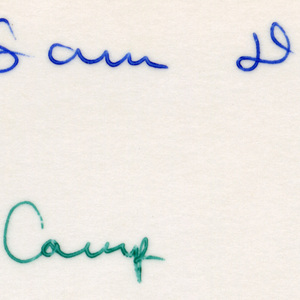 Sam D
Camp